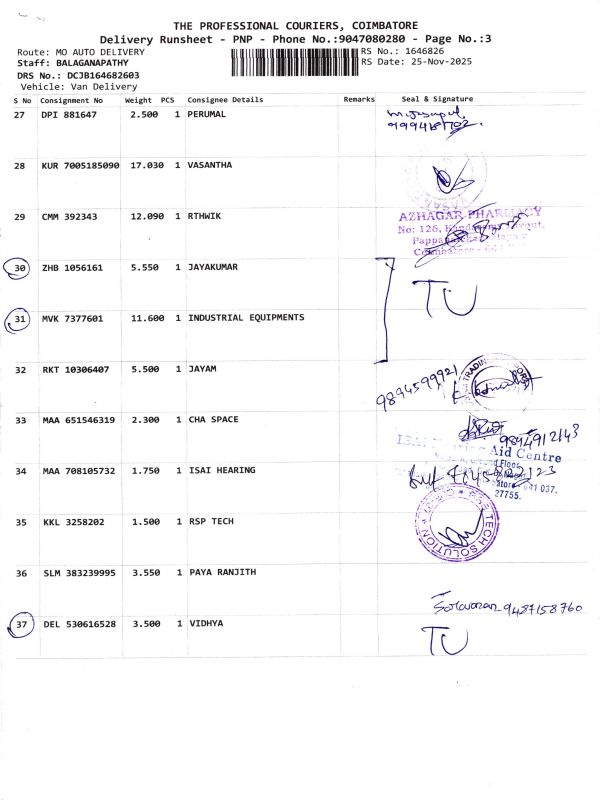 THE PROFESSIONAL COURIERS, COIMBATORE
Delivery Runsheet - PNP - Phone No.:9047080280 - Page No.:3
Route: MO AUTO DELIVERY
RS No.: 1646826
Staff: BALAGANAPATHY
RS Date: 25-Nov-2025
DRS No.: DCJB164682603
Vehicle: Van Delivery
S No Consignment No Weight PCS Consignee Details Remarks Seal & Signature
27 DPI 881647 2.500 1 PERUMAL
28 KUR 7005185090 17.030 1 VASANTHA
29 CMM 392343 12.090 1 RTHWIK
AZHAGAR PHARMACY
No: 126,
30 ZHB 1056161 5.550 1 JAYAKUMAR
TU
31 MVK 7377601 11.600 1 INDUSTRIAL EQUIPMENTS
32 RKT 10306407 5.500 1 JAYAM
9894599921
33 MAA 651546319 2.300 1 CHA SPACE
9894912143
Aid Centre
Floor,
34 MAA 708105732 1.750 1 ISAI HEARING
641 037.
27755.
35 KKL 3258202 1.500 1 RSP TECH
TECH SOLUTION
36 SLM 383239995 3.550 1 PAYA RANJITH
9487158760
37 DEL 530616528 3.500 1 VIDHYA
TU